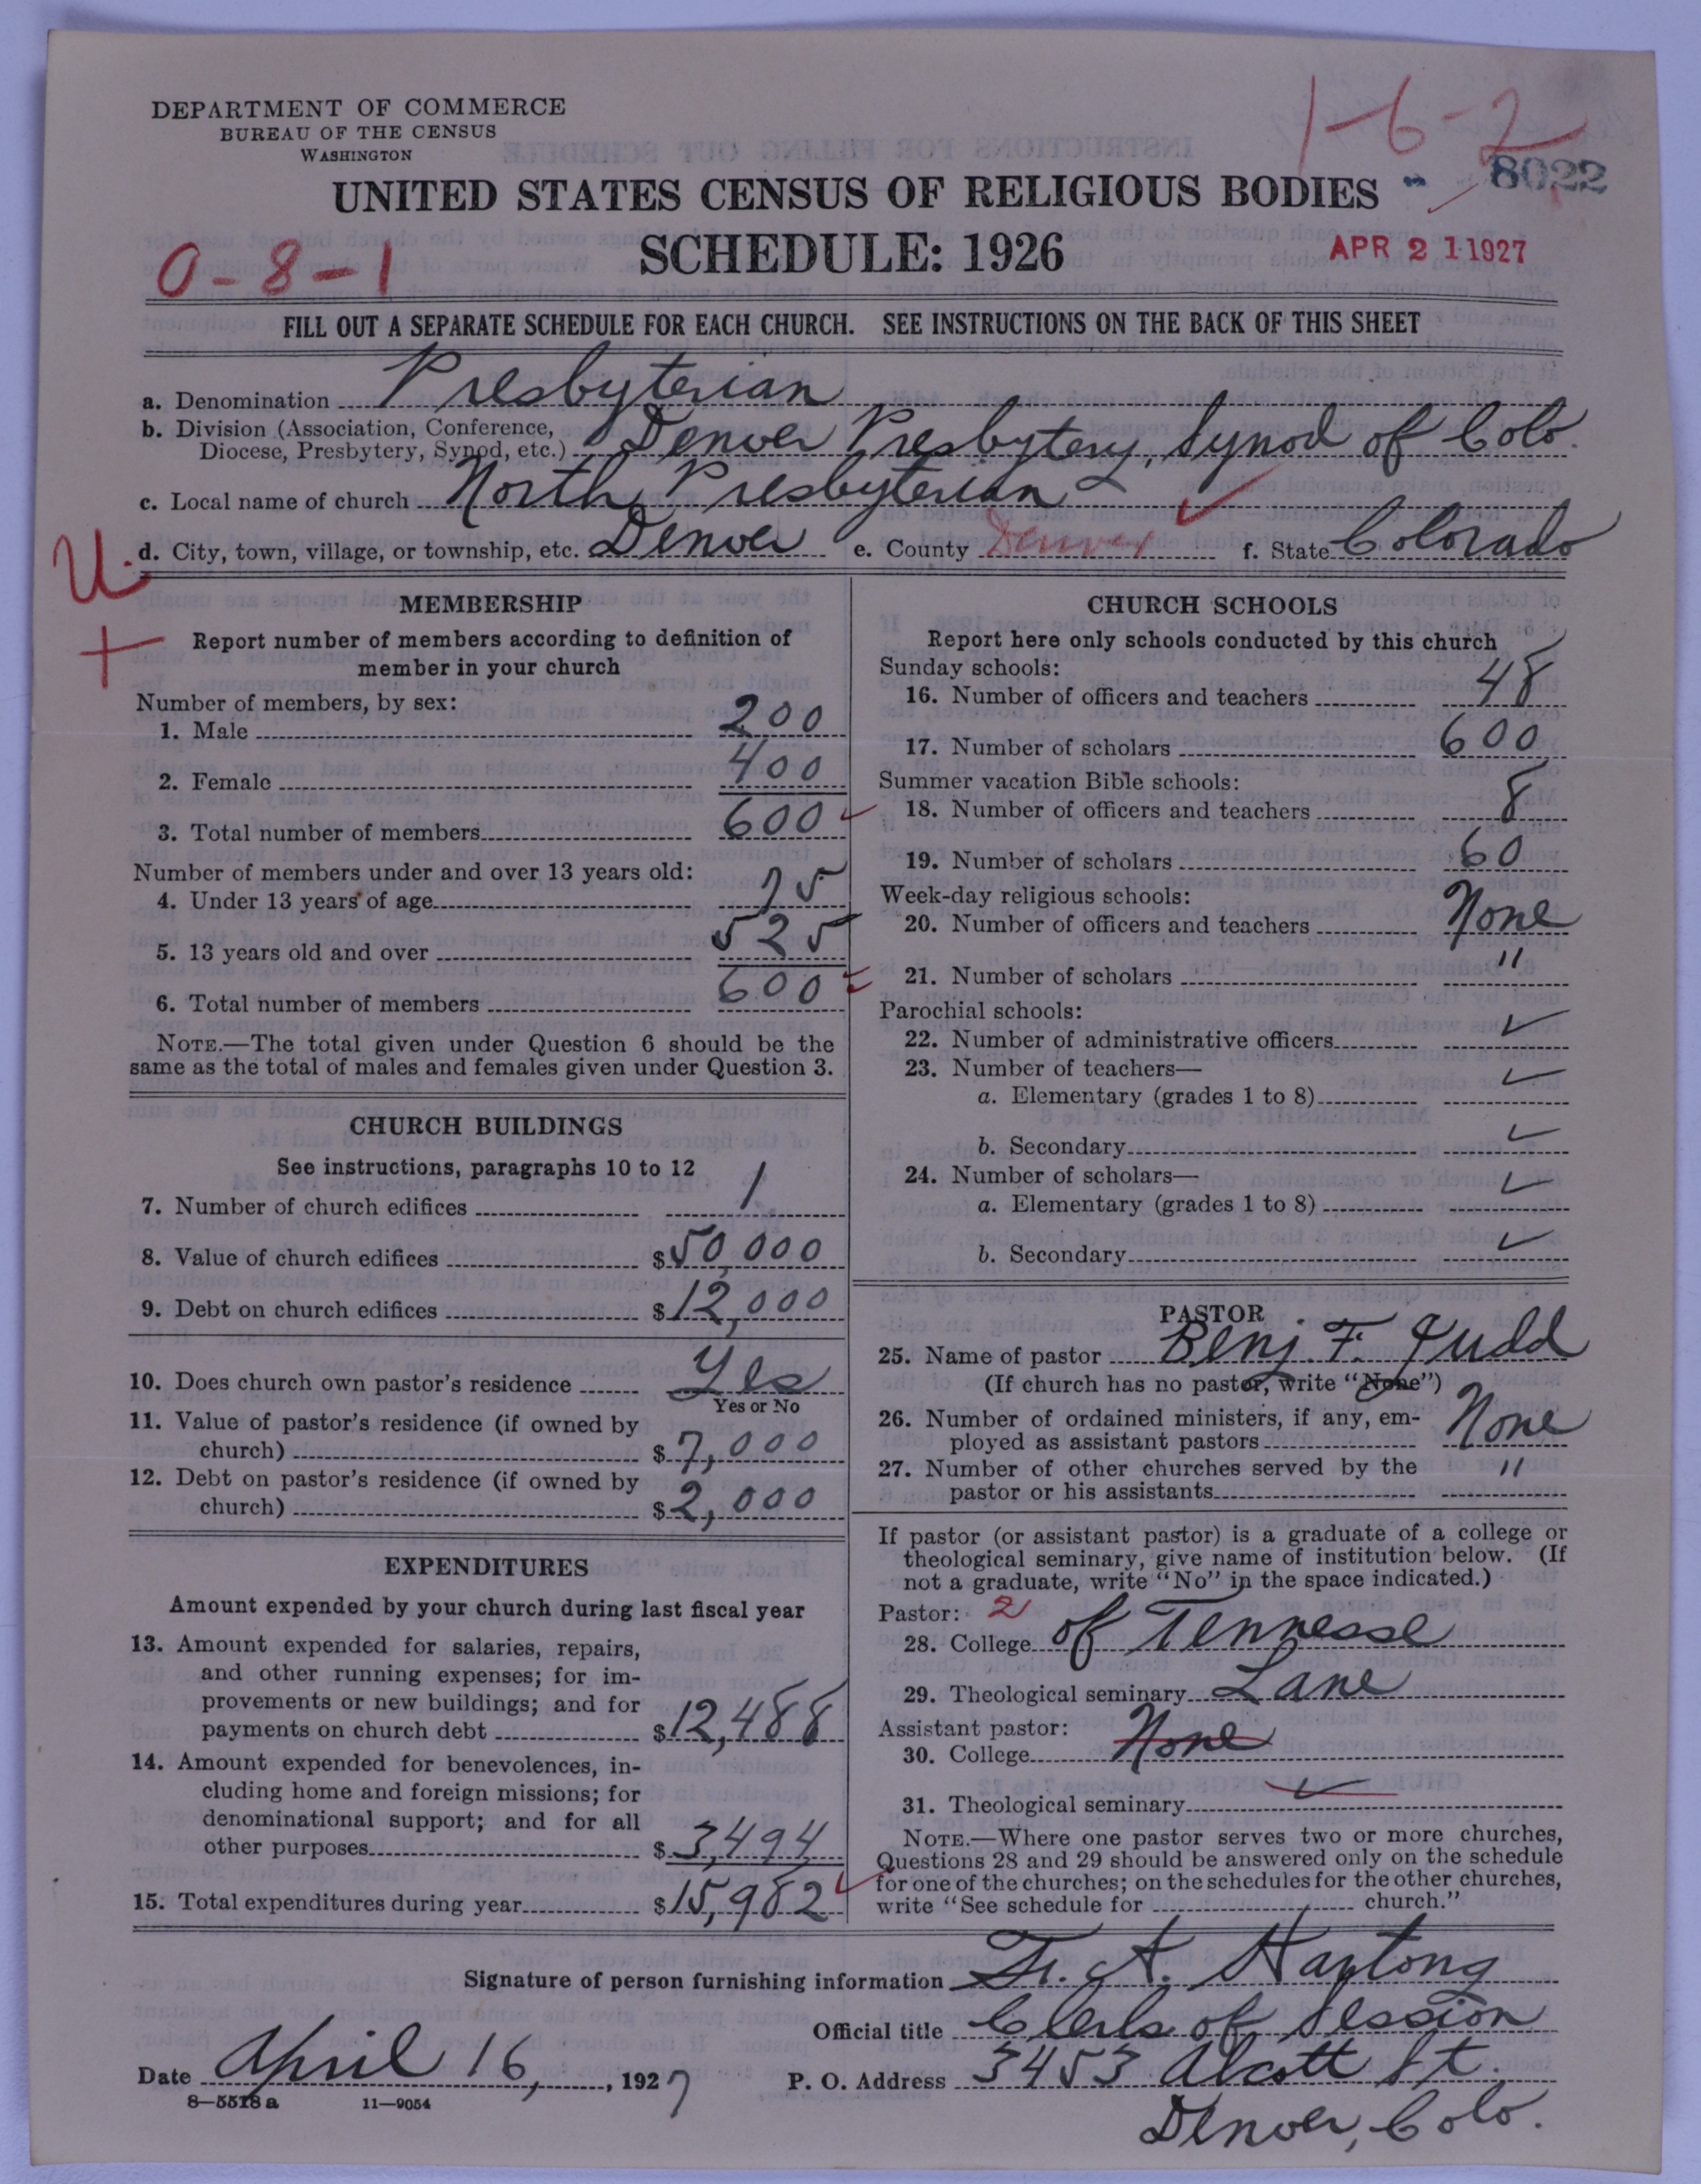 DEPARTMENT OF COMMERCE
BUREAU OF THE CENSUS
WASHINGTON
1-6-2
8022
UNITED STATES CENSUS OF RELIGIOUS BODIES
SCHEDULE: 1926
APR 21 1927
0-8-1
FILL OUT A SEPARATE SCHEDULE FOR EACH CHURCH. SEE INSTRUCTIONS ON THE BACK OF THIS SHEET
a. Denomination Presbyterian
b. Division (Association, Conference,
Diocese, Presbytery, Synod, etc.) Denver Presbytery, Synod of Colo.
c. Local name of church North Presbyterian
U. d. City, town, village, or township, etc. Denver e. County Denver f. State Colorado
+
MEMBERSHIP
Report number of members according to definition of
member in your church
Number of members, by sex:
1. Male 200
2. Female 400
3. Total number of members 600
Number of members under and over 13 years old:
4. Under 13 years of age 75
5. 13 years old and over 525
6. Total number of members 600
NOTE.—The total given under Question 6 should be the
same as the total of males and females given under Question 3.
CHURCH BUILDINGS
See instructions, paragraphs 10 to 12
7. Number of church edifices 1
8. Value of church edifices $50,000
9. Debt on church edifices $12,000
10. Does church own pastor's residence Yes
Yes or No
11. Value of pastor's residence (if owned by
church) $7,000
12. Debt on pastor's residence (if owned by
church) $2,000
EXPENDITURES
Amount expended by your church during last fiscal year
13. Amount expended for salaries, repairs,
and other running expenses; for im-
provements or new buildings; and for
payments on church debt $12,488
14. Amount expended for benevolences, in-
cluding home and foreign missions; for
denominational support; and for all
other purposes $3,494
15. Total expenditures during year $15,982
CHURCH SCHOOLS
Report here only schools conducted by this church
Sunday schools:
16. Number of officers and teachers 48
17. Number of scholars 600
Summer vacation Bible schools:
18. Number of officers and teachers 8
19. Number of scholars 60
Week-day religious schools:
20. Number of officers and teachers None
21. Number of scholars "
Parochial schools:
22. Number of administrative officers ✓
23. Number of teachers—
a. Elementary (grades 1 to 8) ✓
b. Secondary ✓
24. Number of scholars—
a. Elementary (grades 1 to 8) ✓
b. Secondary ✓
PASTOR
25. Name of pastor Benj. F. Judd
(If church has no pastor, write "None")
26. Number of ordained ministers, if any, em-
ployed as assistant pastors None
27. Number of other churches served by the
pastor or his assistants "
If pastor (or assistant pastor) is a graduate of a college or
theological seminary, give name of institution below. (If
not a graduate, write "No" in the space indicated.)
Pastor: 2
28. College of Tennesse
29. Theological seminary Lane
Assistant pastor:
30. College None
31. Theological seminary ✓
NOTE.—Where one pastor serves two or more churches,
Questions 28 and 29 should be answered only on the schedule
for one of the churches; on the schedules for the other churches,
write "See schedule for church."
Signature of person furnishing information Fr. A. Hartong
Official title Clerk of Session
Date April 16, 1927
P. O. Address 3453 Alcott St.
Denver, Colo.
8—5518 a 11—9054